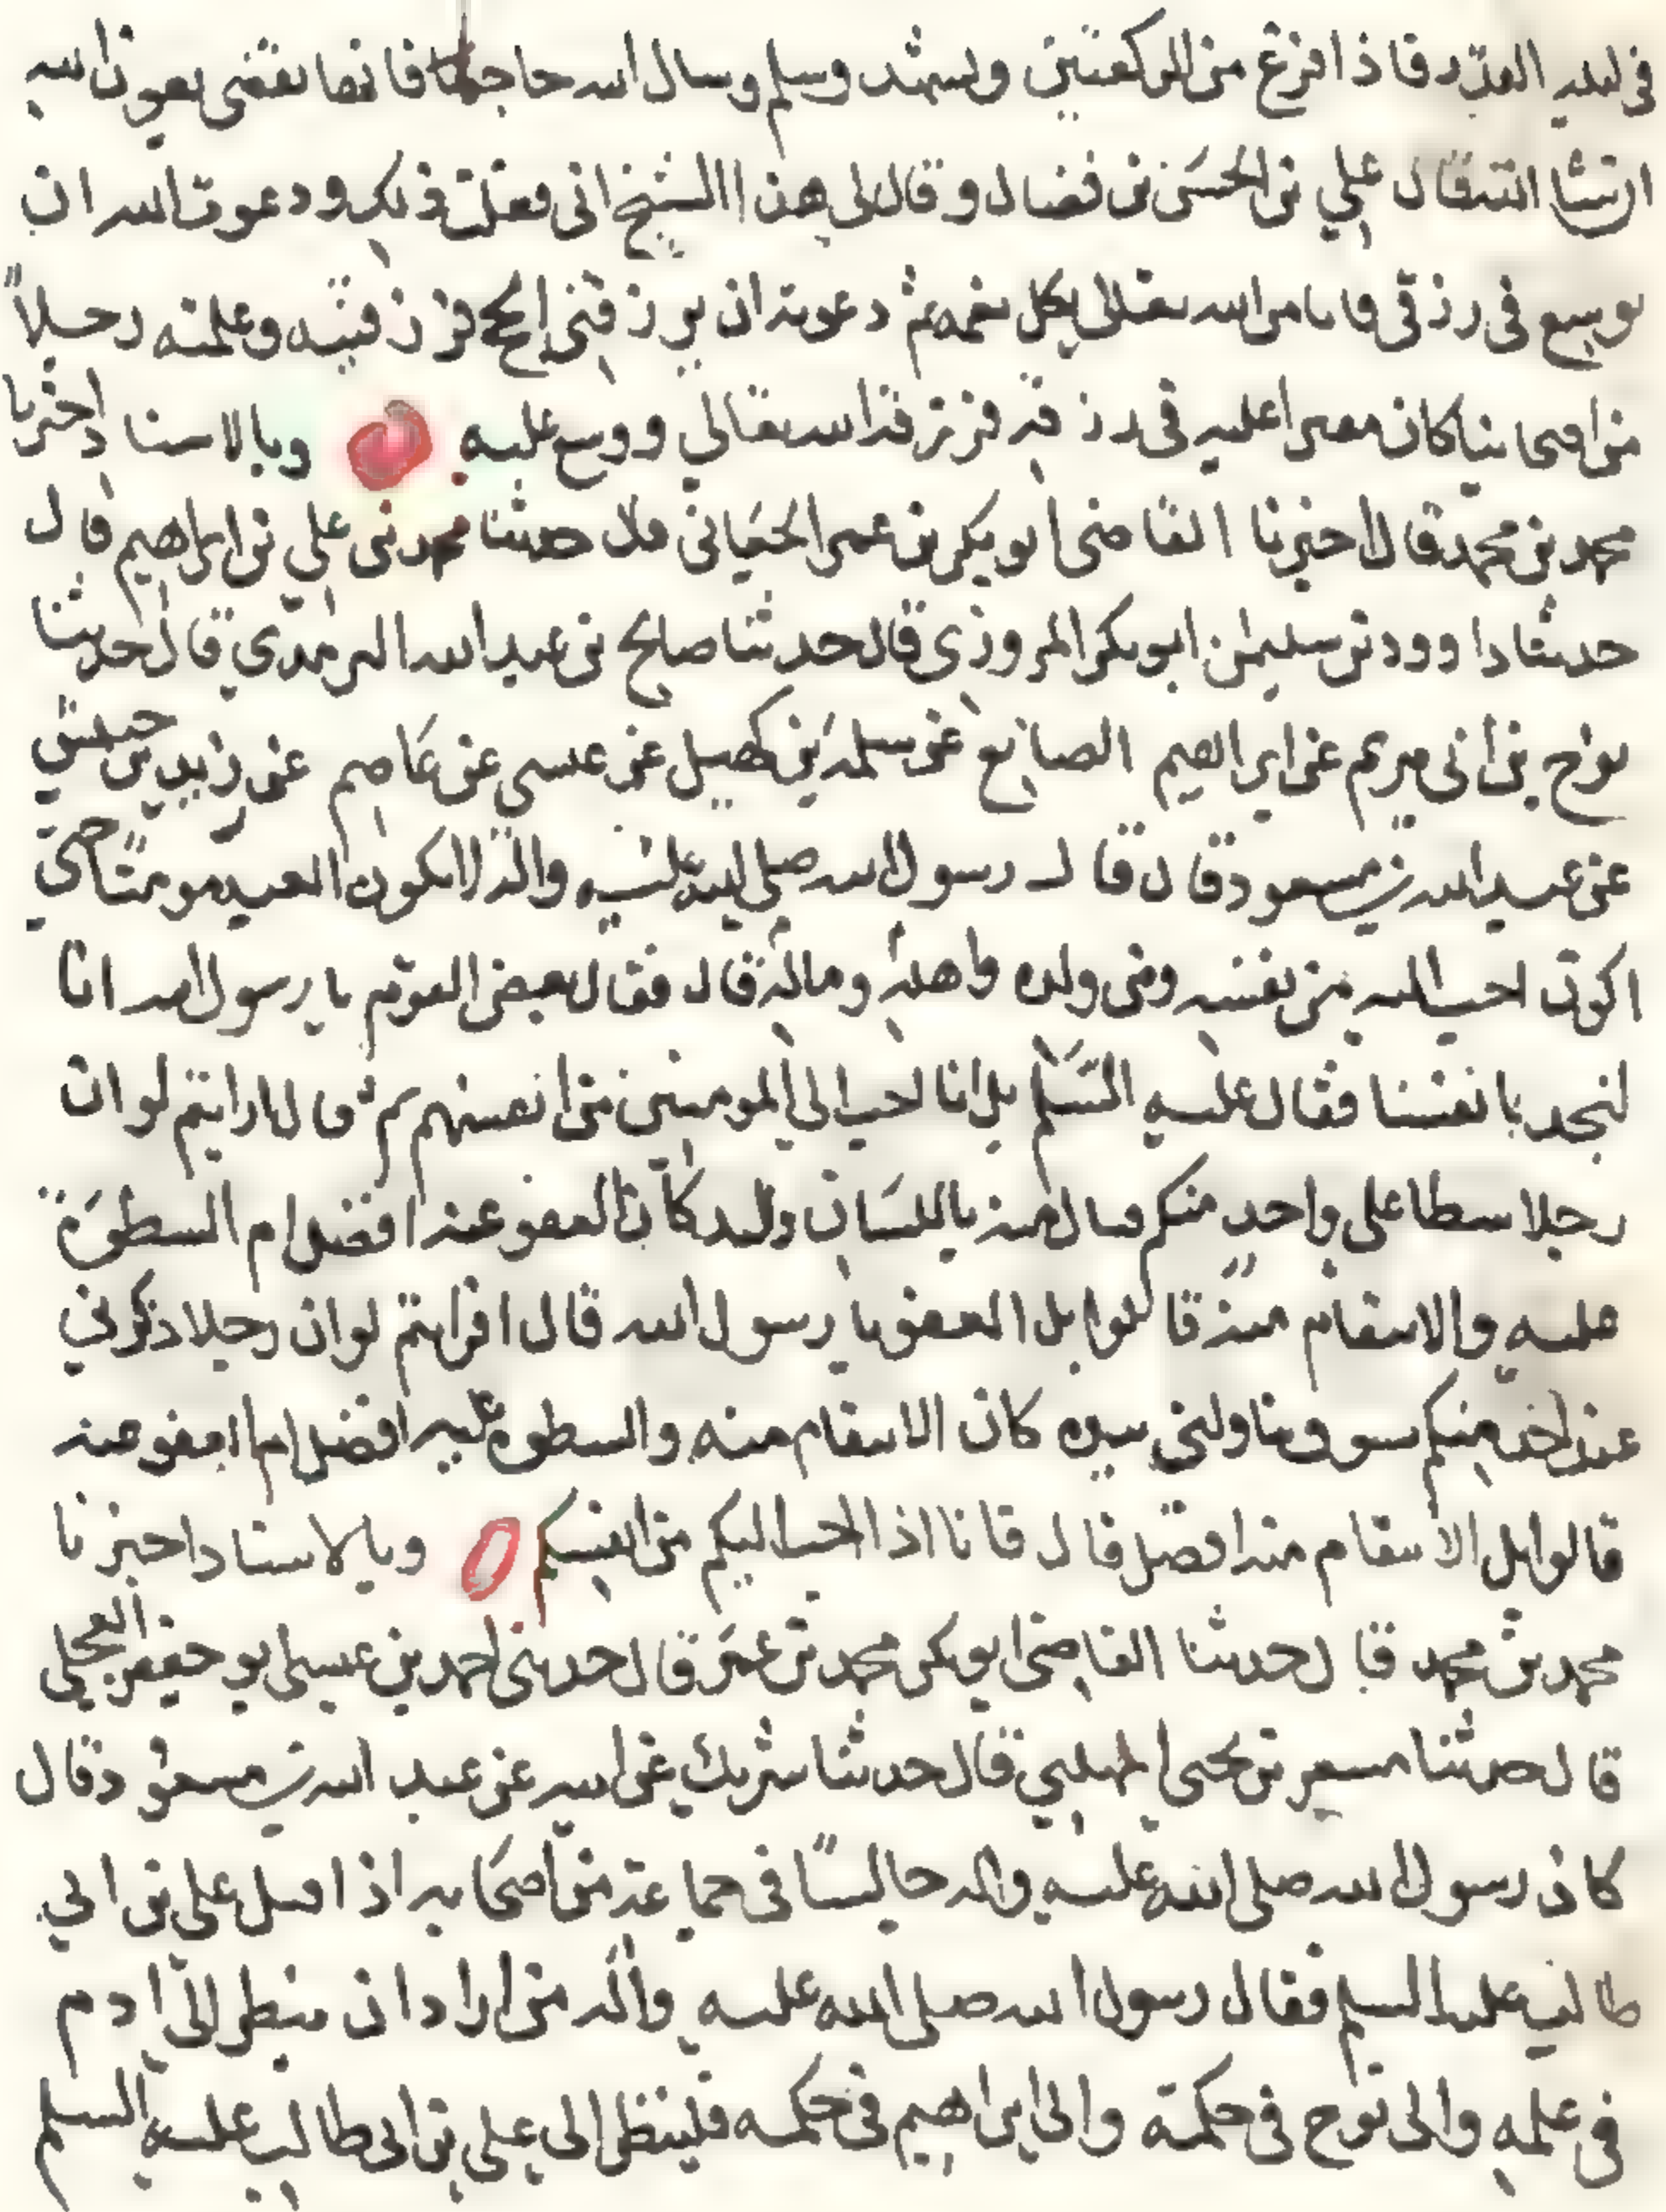 في ليله القدر فاذا فرغ من الركعتين وتشهد وسلم وسال الله حاجته فانها تقضى بعون الله
ان شا الله قال علي بن الحسن بن فضال وقال لي هذا الشيخ اني فعلت ذلك ودعوت الله ان
يوسع في رزقي فانا من الله تعالى بكل نعمه ثم دعوته ان يرزقني الحج فرزقنيه وعلمته رجلاً
من اصحابنا كان مقترا عليه في رزقه فرزقه الله تعالي ووسع عليه وبالاسناد اخبرنا
محمد بن محمد قال اخبرنا القاضي ابو بكر بن عمر الجعابي قال حدثنا محمد بن علي بن ابراهيم قال
حدثنا داوود بن سليمن ابو بكر المروزي قال حدثنا صالح بن عبد الله الترمذي قال حدثنا
نوح بن ابي مريم عن ابراهيم الصايغ عن سلمة بن كهيل عن عيسى عن عاصم عن زر بن حبيش
عن عبد الله بن مسعود قال قال رسول الله صلى الله عليه واله لا يكون العبد مومنا حتي
اكون احب اليه من نفسه ومن ولده واهله وماله قال فقال بعض القوم يا رسول الله انا
لنجد بانفسنا فقال عليه السلم بل انا احب الي المومنين من انفسهم ثم قال ارايتم لو ان
رجلا سطا على واحد منكم فنال منه باللسان واليد كان العفو عنه افضل ام السطوة
عليه والانتقام منه قالوا بل العفو يا رسول الله قال افرايتم لو ان رجلا ذكرني
عند احد منكم بسو وتناولني بيده كان الانتقام منه والسطوه عليه افضل ام العفو عنه
قالوا بل الانتقام منه افضل قال فانا اذا احب اليكم من انفسكم وبالاسناد اخبرنا
محمد بن محمد قال حدثنا القاضي ابو بكر محمد بن عمر قال حدثني احمد بن عيسى ابو جعفر العجلي
قال حدثنا مسعر بن يحيى النهدي قال حدثنا شريك عن ابيه عن عبد الله بن مسعود قال
كان رسول الله صلى الله عليه واله جالسا في جماعة من اصحابه اذ اقبل علي بن ابي
طالب عليه السلم فقال رسول الله صلى الله عليه واله من اراد ان ينظر الى ادم
في علمه والى نوح في حكمته والى ابراهيم في حكمه فلينظر الى علي بن ابى طالب عليه السلم